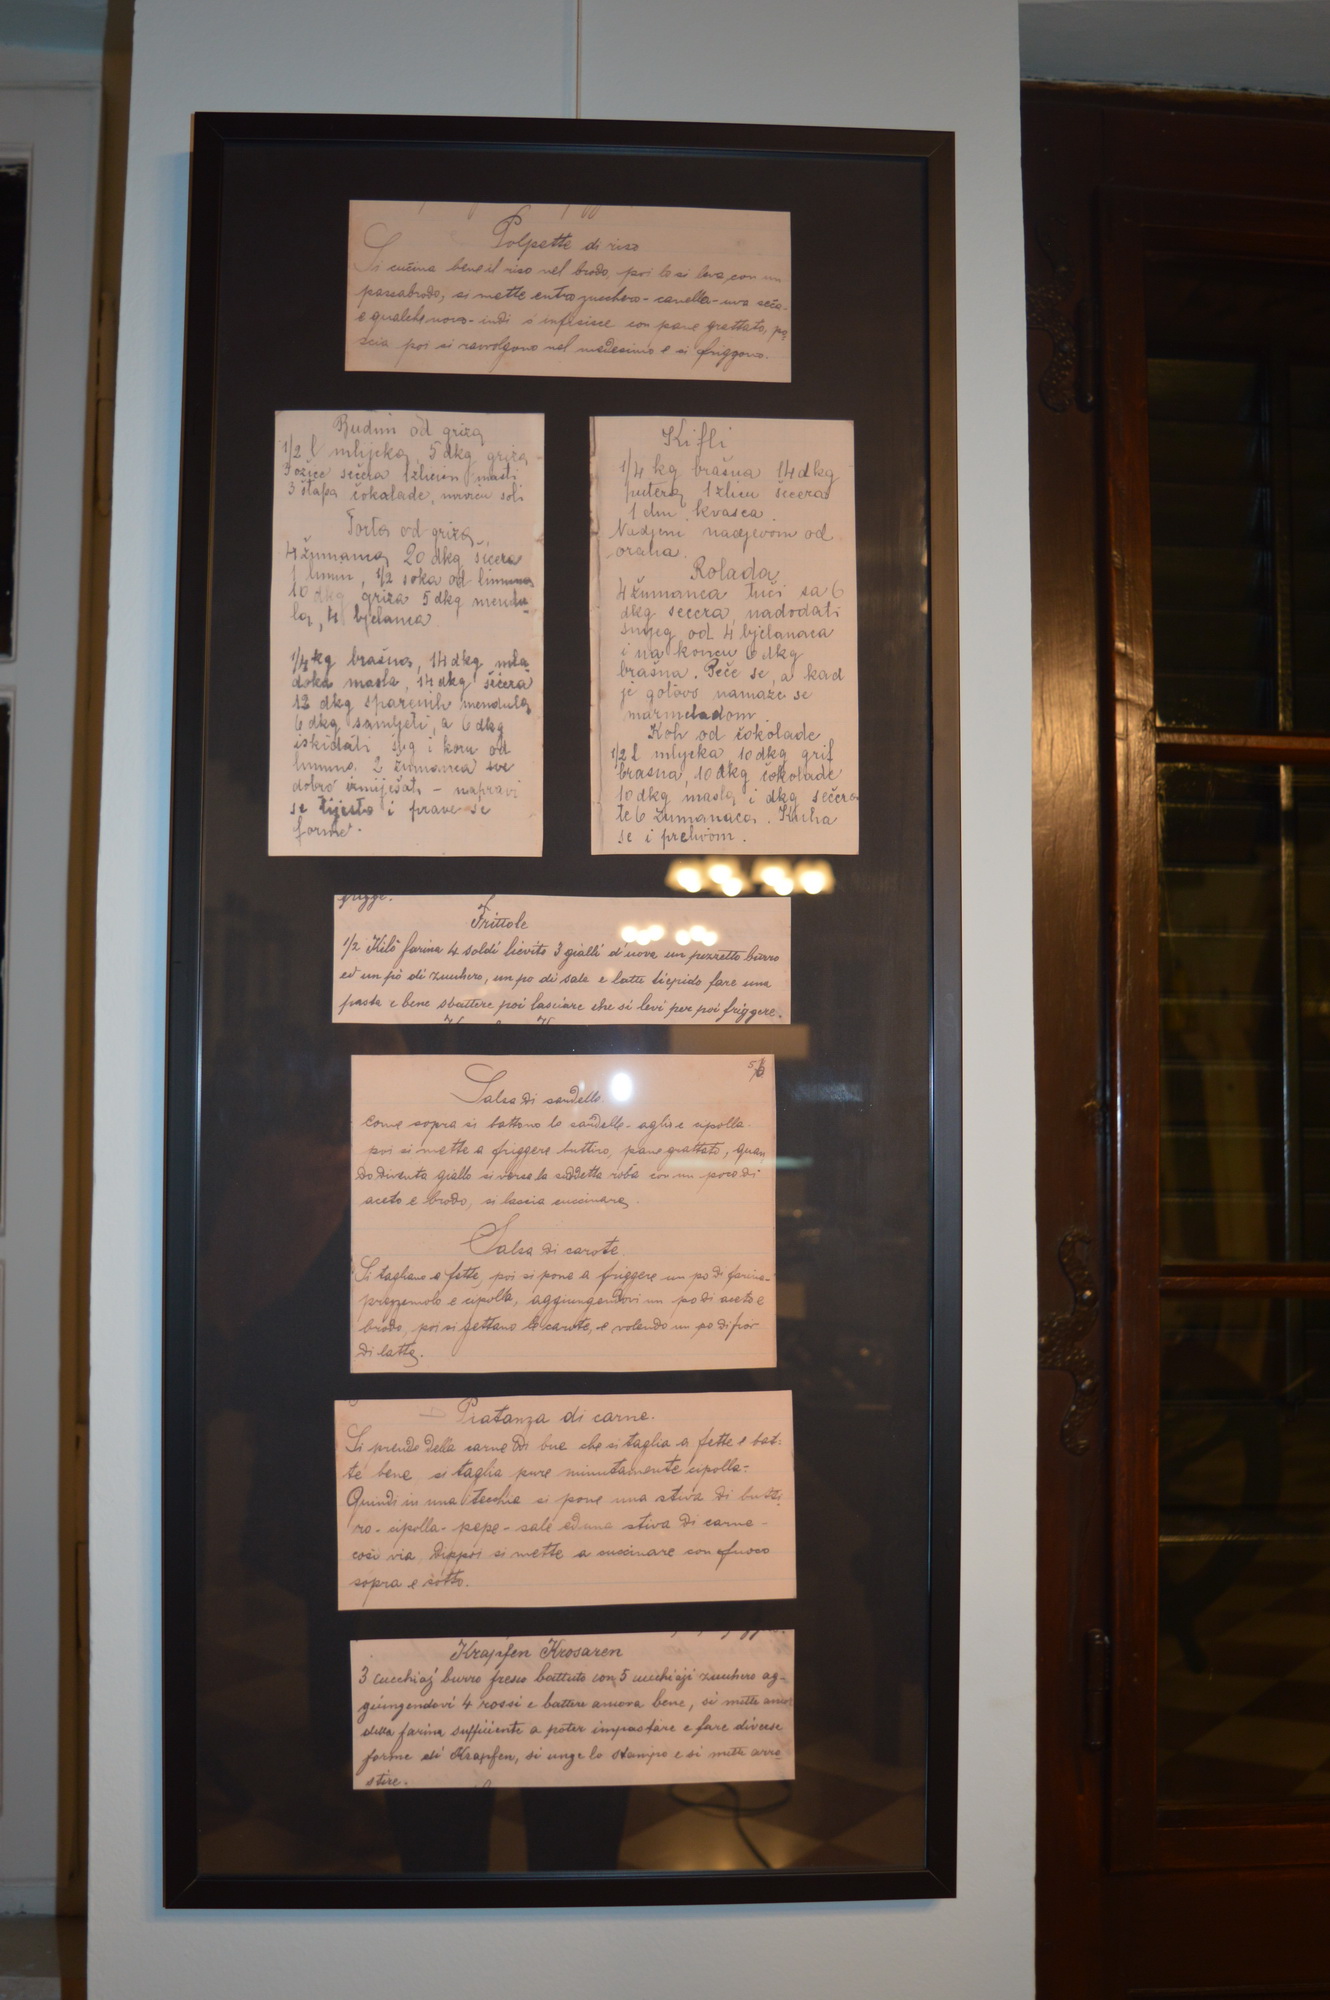 Polpette di riso
Si cucina bene il riso nel brodo, poi lo si leva con un
passabrodo, si mette entro zucchero - canella - uva seca -
e qualche novo - indi s'infisisce con pane grattato, po
scia poi si ravvolgono nel medesimo e si friggono.
Budin od griza
1/2 l mlijeka, 5 dkg griza
3 ožice sečera 1 žlicu masti
3 štapa čokolade, malo soli
Torta od griza
4 žumanca 20 dkg sićera
1 limun, 1/2 soka od limuna
10 dkg griza 5 dkg mendu
la, 4 bjelanca
1/4 kg brašna, 14 dkg mla
doka masla, 14 dkg sićera
12 dkg sparenih mendula
6 dkg samljeti, a 6 dkg
iskidati, sug i koru od
limuna, 2 žumanca sve
dobro izmiješati - napravi
se tijesto i prave se
forme.
Kifli
1/4 kg brašna 14 dkg
putera, 1 žlicu šićera
1 dm kvasca
Nadjeni nadjevom od
oraha.
Rolada
4 žumanca tući sa 6
dkg secera, nadodati
snijeg od 4 bjelanaca
i na koncu 6 dkg
brašna. Peče se, a kad
je gotovo namaze se
marmeladom
Koh od čokolade
1/2 l mlijeka 10 dkg grif
brasna, 10 dkg čokolade
10 dkg masla i dkg sečera
te 6 žumanaca. Kuha
se i prelivom.
frigge.
Frittole
1/2 Kilo farina 4 soldi lievito 3 gialli d'uova un pezzetto burro
ed un pò di zucchero, un po di sale e latte tiepido fare una
pasta e bene sbattere poi lasciare che si levi per poi friggere.
Salsa di sardelle.
Come sopra si battono le sardelle - aglio e cipolla -
poi si mette a friggere buttiro, pane grattato, quan
do diventa giallo si versa la suddetta roba con un poco di
aceto e brodo, si lascia cuccinare.
Salsa di carote
Si tagliano a fette, poi si pone a friggere un po di farina -
prezzemolo e cipolla, aggiungendovi un po di aceto e
brodo, poi si gettano le carote, e volendo un po di fior
di latte.
Piatanza di carne.
Si prende della carne di bue che si taglia a fette e bat-
te bene, si taglia pure minutamente cipolla -
Quindi in una tecchia si pone una stiva di butti
ro - cipolla - pepe - sale ed una stiva di carne -
così via, dippoi si mette a cuccinare con fuoco
sopra e sotto.
Krapfen Krosaren
3 cucchiaj burro fresco battuto con 5 cucchiaji zucchero ag-
giungendovi 4 rossi e battere ancora bene, si mette anco
della farina sufficiente a poter impastare e fare diverse
forme di Krapfen, si unge lo stampo e si mette arro
stire.